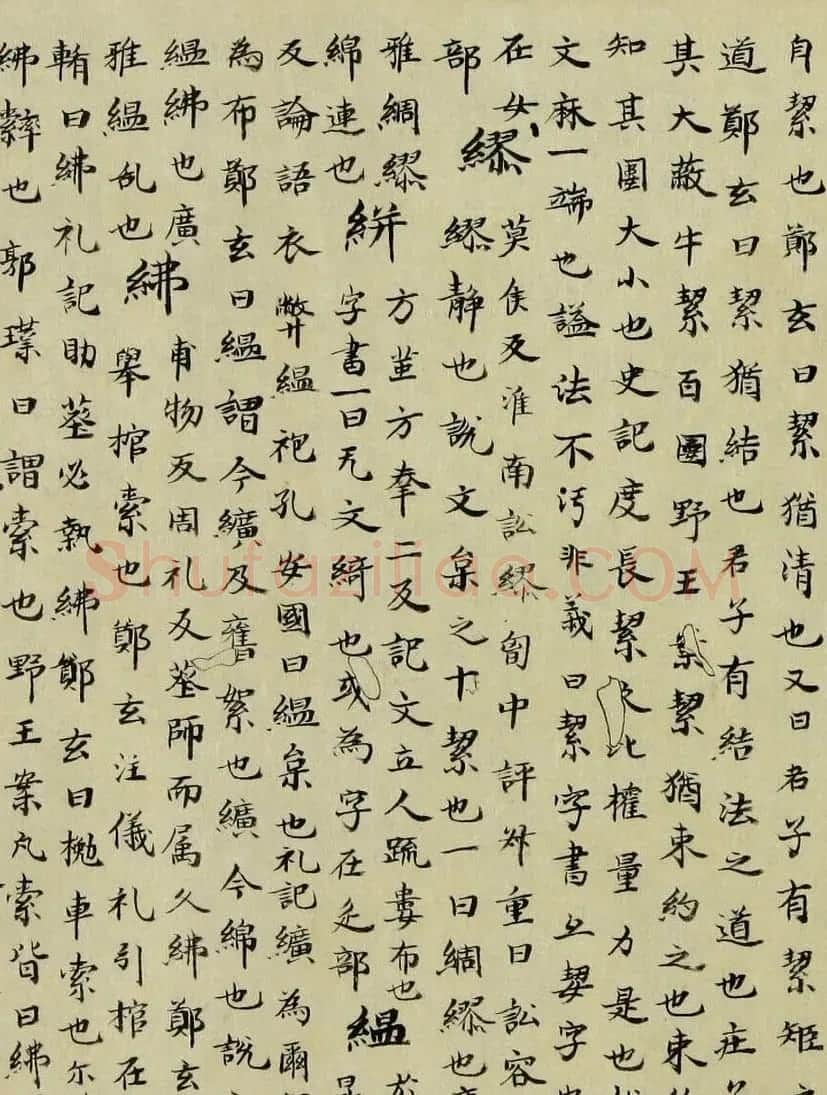 自絜也鄭玄曰絜猶清也又曰君子有絜矩之
道鄭玄曰絜猶結也君子有結法之道也庄子
其大蔽牛絜百圍野王案絜猶束約之也束
知其圍大小也史記度長絜大比權量力是也
文麻一端也謚法不汙非義曰絜字書亦絜字也
在女部
繆 莫侯反淮南訟繆匈中評卅重曰訟容
繆静也說文枲之十絜也一曰綢繆也
雅綢繆
綿連也
絣 方莖方奉二反記文立人疏婁布也
字書一曰无文綺也或為字在辵部
縕 於
反論語衣弊縕袍孔安國曰縕枲也礼記纊為爾
為布鄭玄曰縕謂今纊及舊絮也纊今綿也說
縕紼也廣
雅縕乱也
紼 甫物反周礼及葬師而属久紼鄭玄
舉棺索也鄭玄注儀礼引棺在
輴曰紼礼記助葬必執紼鄭玄曰撧車索也尔
紼繂也郭璞曰謂索也野王案凡索皆曰紼
Shufaziliao.COM